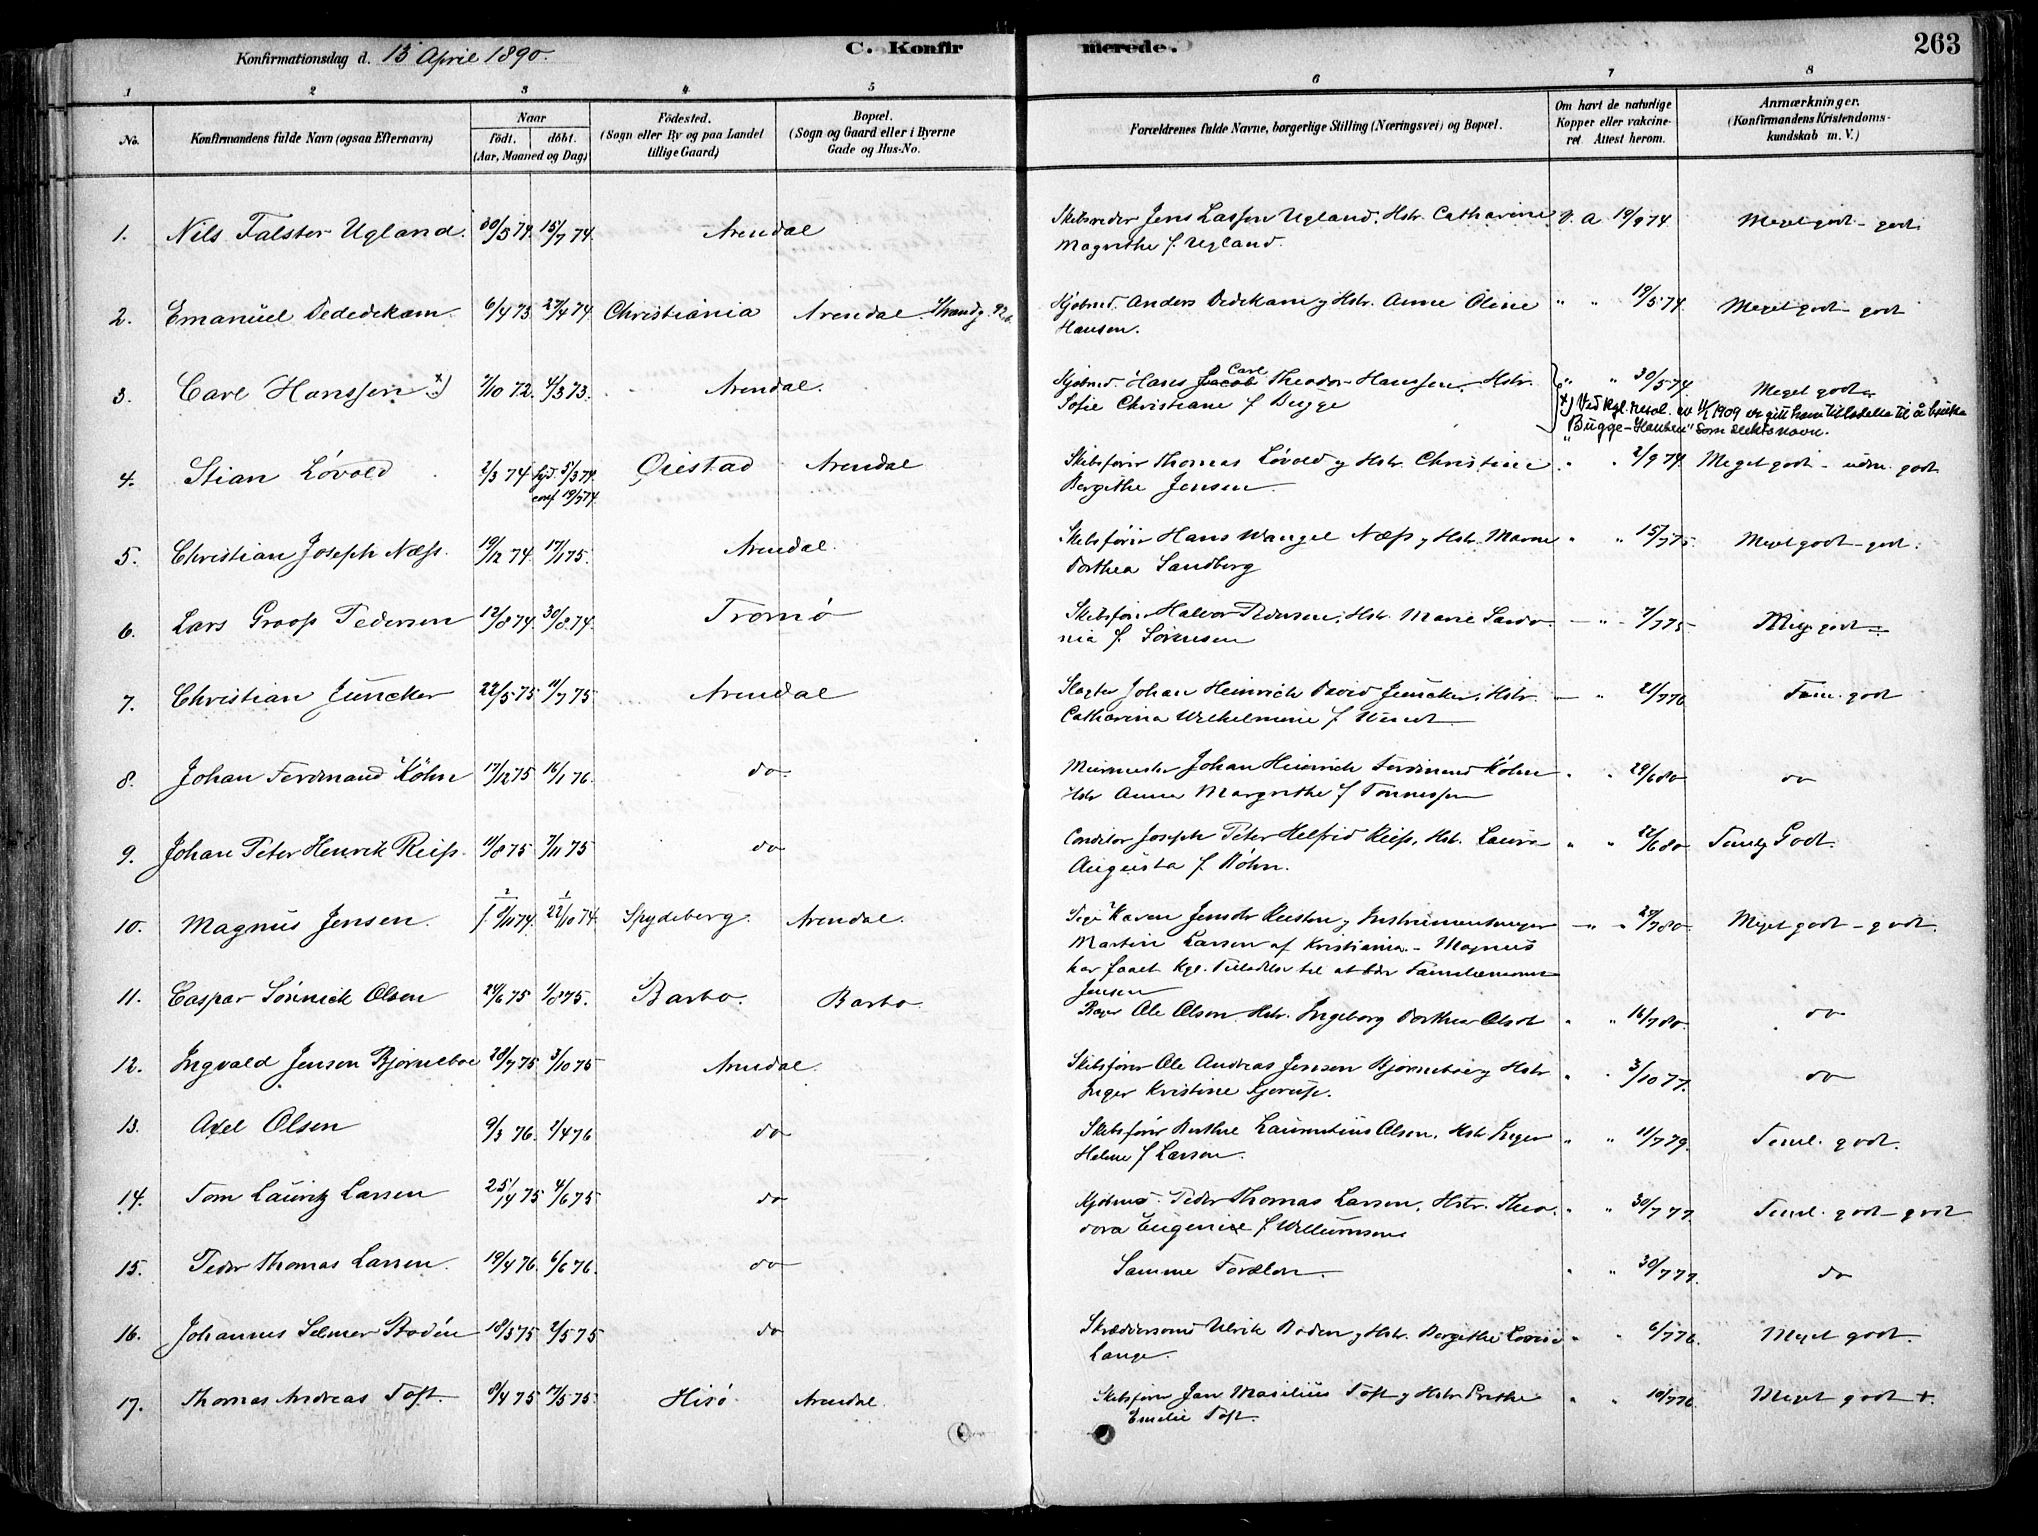 Konfirmationsdag d. 13 April 1890. C. Konfirmerede. 263
1 2 3 4 5 6 7 8
No. Konfirmandens fulde Navn (ogsaa Efternavn) Naar født. døbt. (Aar, Maaned og Dag) Fødested. (Sogn eller By og paa Landet tillige Gaard) Bopæl. (Sogn og Gaard eller i Byerne Gade og Hus-No. Forældrenes fulde Navne, borgerlige Stilling (Næringsvei) og Bopæl. Om havt de naturlige Kopper eller vakcineret Attest herom. Anmærkninger. (Konfirmandens Kristendomskundskab m. V.)
1. Nils Falster Ugland. 30/5 74. 15/7 74. Arendal Skibsreder Jens Lassen Ugland, Hstr. Catharine V. A 19/9 74 Meget godt - godt
Magrethe f. Ugland.
2. Emanuel Dededekam 6/4 73 27/4 74 Christiania Arendal Kjøbmd. Anders Dedekam og Hstr. Anne Oline " " 19/5 74. Meget godt - godt
Hansen.
3. Carl Hanssen x) 7/10 72. 4/3 73. Arendal. Kjøbmd. Hans Jacob Carl Theodor Hanssen, Hstr. " " 30/5 74 Meget godt
Sofie Christiane f Bugge x) Ved Kgl. resol. av 1909 er gitt ham tilladelse til å bruke
"Bugge-Hanssen" som slektsnavn.
4. Stian Løvold 2/3 74 hjd. 5/3 74. Øiestad Arendal Skibsfører Thomas Løvold og Hstr. Christine " " 2/9 74 Meget godt - udm. godt
conf 19/7 74. Bergithe Jensen.
5. Christian Joseph Næss. 19/12 74. 17/1 75. Arendal. Skibsfører Hans Wangel Næss og Hstr. Maren " " 15/7 75. Meget godt - godt.
Dorthea Sandberg
6. Lars Groos Pedersen 12/8 74. 30/8 74. Tromø Skibsfører Halvor Pedersen, Hstr. Marie Sardo- " 7/7 75 Meg godt
nia f. Sørensen
7. Christian Juncker 22/5 75 11/7 75 Arendal Slagter Johan Heinrich David Juncker, Hstr. " 21/7 76 Teml. godt
Catharina Wilhelmine f
8. Johan Ferdinand Køhn 17/12 75 16/1 76. do. Murmester Johan Heinrich Ferdinand Køhn " " 29/6 80 do
Hstr Anne Margrethe f Tønnessen
9. Johan Peter Henrik Reiss. 11/8 75 7/11 75 do Conditor Joseph Peter Helfrid Reiss, Hstr. Laura " " 22/6 80 Temlg Godt.
Augusta f. Køhn.
10. Magnus Jensen. 74. 22/10 74. Spydeberg. Arendal. Pige Karen Jensdr og Instrumentmager " " 29/7 80. Meget godt - godt.
Martin Larsen af Kristiania. - Magnus
har faaet Kgl. Tilladelse til at bære Familienavnet
Jensen
11. Caspar Sønnich Olsen 24/6 75 1/8 75. Barbo. Barbo. Ole Olsen Hstr. Ingeborg Dorthea Olsdt " " 16/7 80. do
12. Ingvald Jensen Bjørneboe 28/7 75 3/10 75 Arendal. Skibsfører Ole Andreas Jensen Bjørneboe og Hstr " " 3/10 77. do
Inger Kristine Kjerulf.
13. Axel Olsen 9/3 76. 2/4 76 do Skibsfører Berthel Laurentius Olsen, Hstr Inger " " 11/7 79. Teml. godt.
Helene f Larsen.
14. Tom Lauritz Larsen 25/4 75 4/6 75 do Kjøbmd. Peder Thomas Larsen, Hstr. Theo- " " 30/7 77. Teml. godt - godt
dora Eugenie f Willumsen
15. Peder Thomas Larsen. 19/4 76. 6/6 76. do Samme Forældre. " " 30/7 77. do
16. Johannes Selmer Bodén 18/3 75 2/5 75 do Skræddersvend Ulrik Boden og Hstr. Bergithe Lovise " " 6/7 76. Meget godt.
Lange.
17. Thomas Andreas Toft 8/4 75 17/5 75. Hisø. Arendal. Skibsfører Jan Masilius Toft og Hstr Grethe " " 10/7 76. Meget godt +.
Emelie Toft.